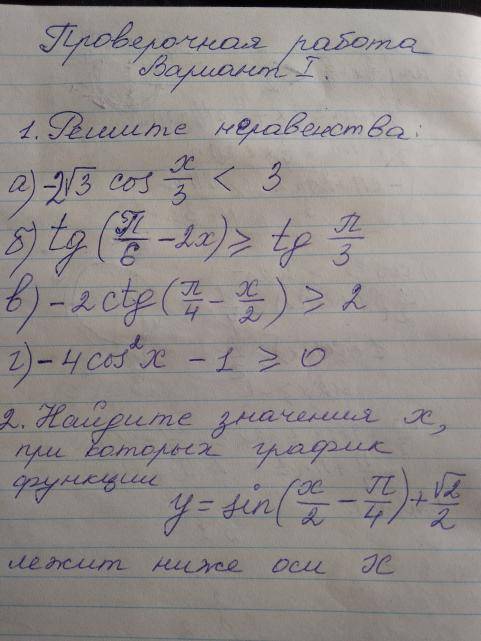 Проверочная работа
Вариант I.
1. Решите неравенства:
а) -2√3 cos x/3 < 3
б) tg(π/6 - 2x) ≥ tg π/3
в) -2ctg(π/4 - x/2) ≥ 2
г) -4cos²x - 1 ≥ 0
2. Найдите значения x,
при которых график
функции
y = sin(x/2 - π/4) + √2/2
лежит ниже оси X